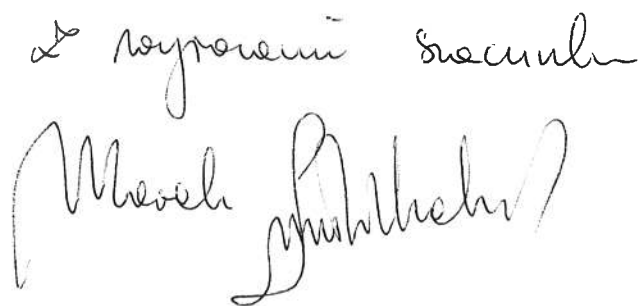 z wyrazami szacunku
Marek